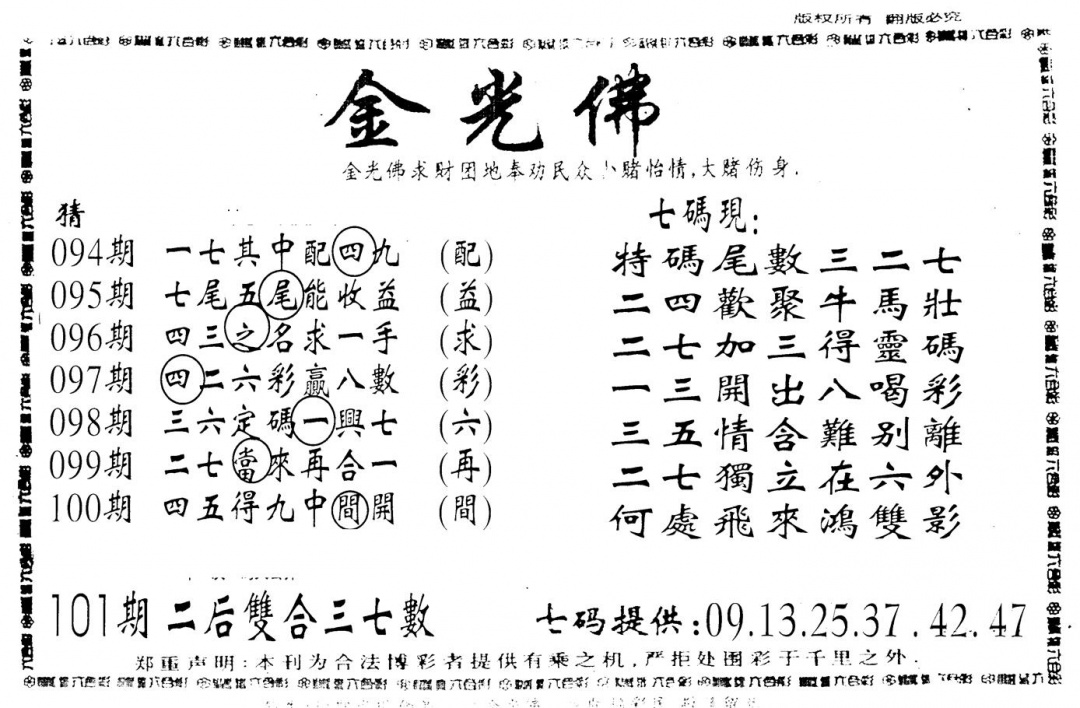 版权所有 翻版必究
金光佛
金光佛求财团地奉劝民众小赌怡情,大赌伤身.
猜
094期 一七其中配四九 (配)
095期 七尾五尾能收益 (益)
096期 四三之名求一手 (求)
097期 四二六彩贏八數 (彩)
098期 三六定碼一興七 (六)
099期 二七當來再合一 (再)
100期 四五得九中間開 (間)
七碼現:
特碼尾數三二七
二四歡聚牛馬壯
二七加三得靈碼
一三開出八喝彩
三五情含難別離
二七獨立在六外
何處飛來鴻雙影
101期 二后雙合三七數
七码提供:09.13.25.37.42.47
郑重声明:本刊为合法博彩者提供有乘之机,严拒处围彩于千里之外.